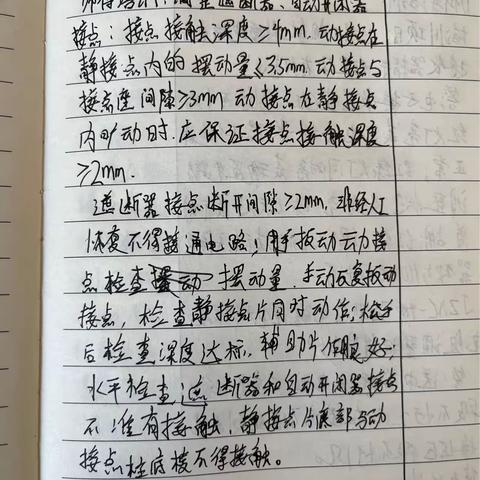 调整遮断器、自动开闭器
接点：接点接触深度≥4mm．动接点在
静接点内的摆动量≤3.5mm．动接点与
接点座间隙≥3mm 动接点在静接点
内晃动时．应保证接点接触深度
≥2mm．
遮断器接点断开间隙≥2mm．非经人工
恢复不得接通电路；用手扳动动接
点检查摆动量．手动反复扳动
接点，检查静接点片同时动作；松手
后检查深度达标．辅助片作用良好；
水平检查遮断器和自动开闭器接点
不准有接触．静接点片底部与动
接点柱底接不得接触。